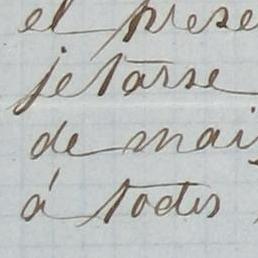 el prese
jetarse
de mai
á todos